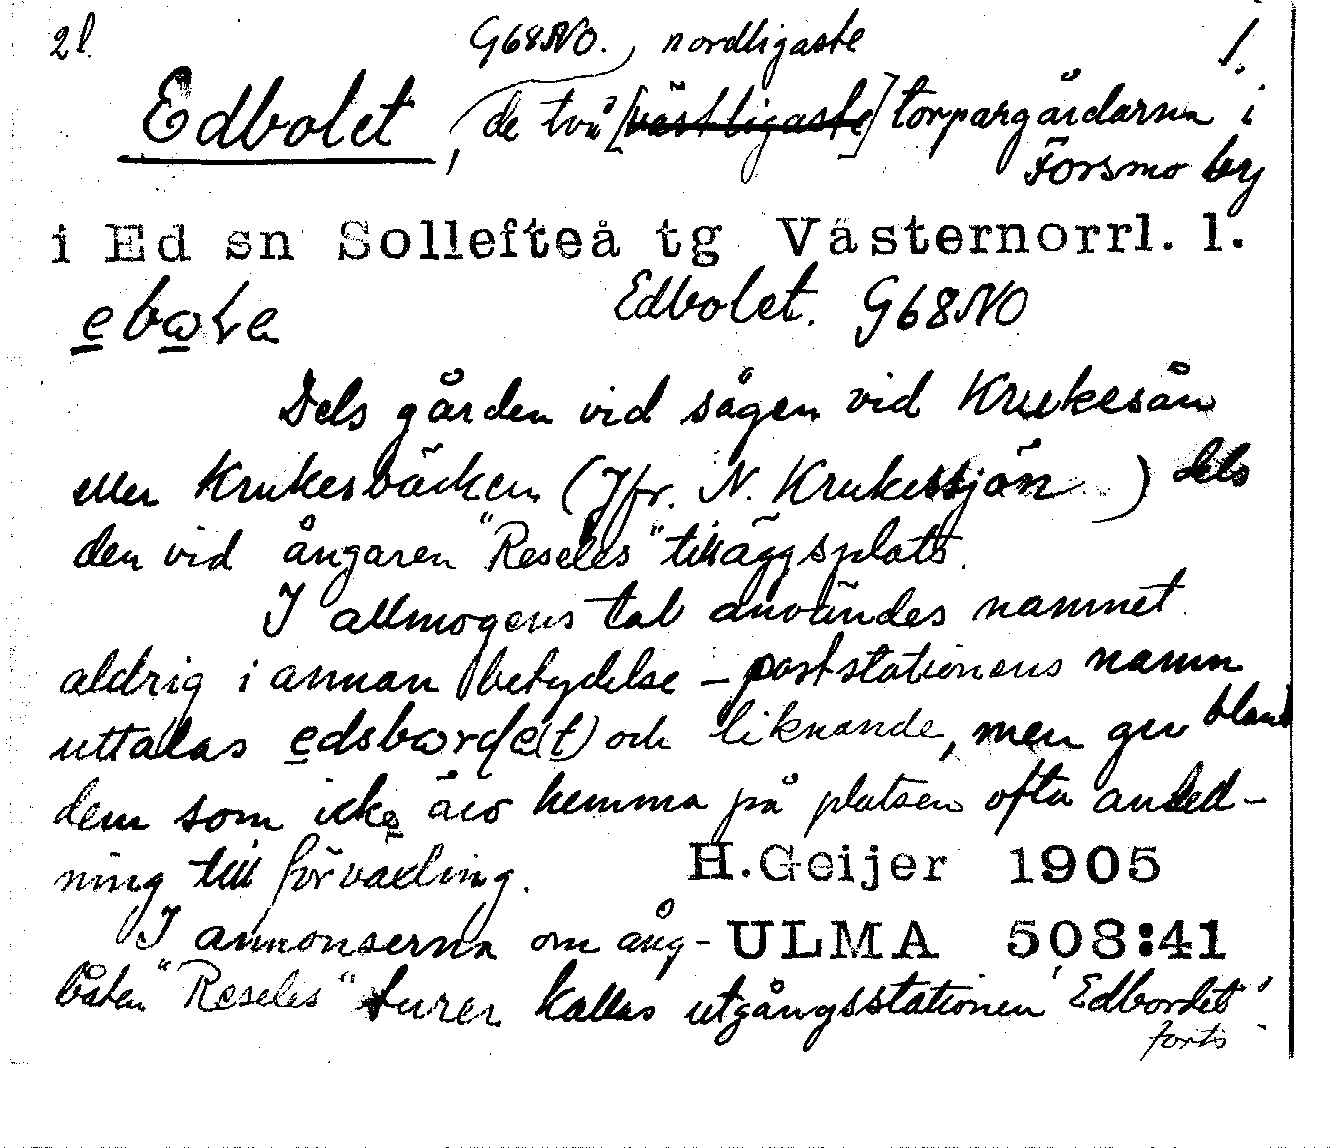 2l. G68NO. nordligaste 1.
Edbolet, de två [västligaste] torpargårdarna i
Forsmo by
i Ed sn Sollefteå tg Västernorrl. l.
Edbolet. G68NO
Dels gården vid sågen vid Krukesån
eller Krukesbäcken (Jfr. N. Krukessjön ) dels
den vid ångaren "Reseles" tilläggsplats.
I allmogens tal användes namnet
aldrig i annan betydelse – poststationens namn
uttalas edsborde(t) och liknande, men ger bland
dem som icke äro hemma på platsen ofta anled-
ning till förväxling. H.Geijer 1905
I annonserna om ång- ULMA 508:41
båten "Reseles" turer kallas utgångsstationen 'Edbordet'
forts